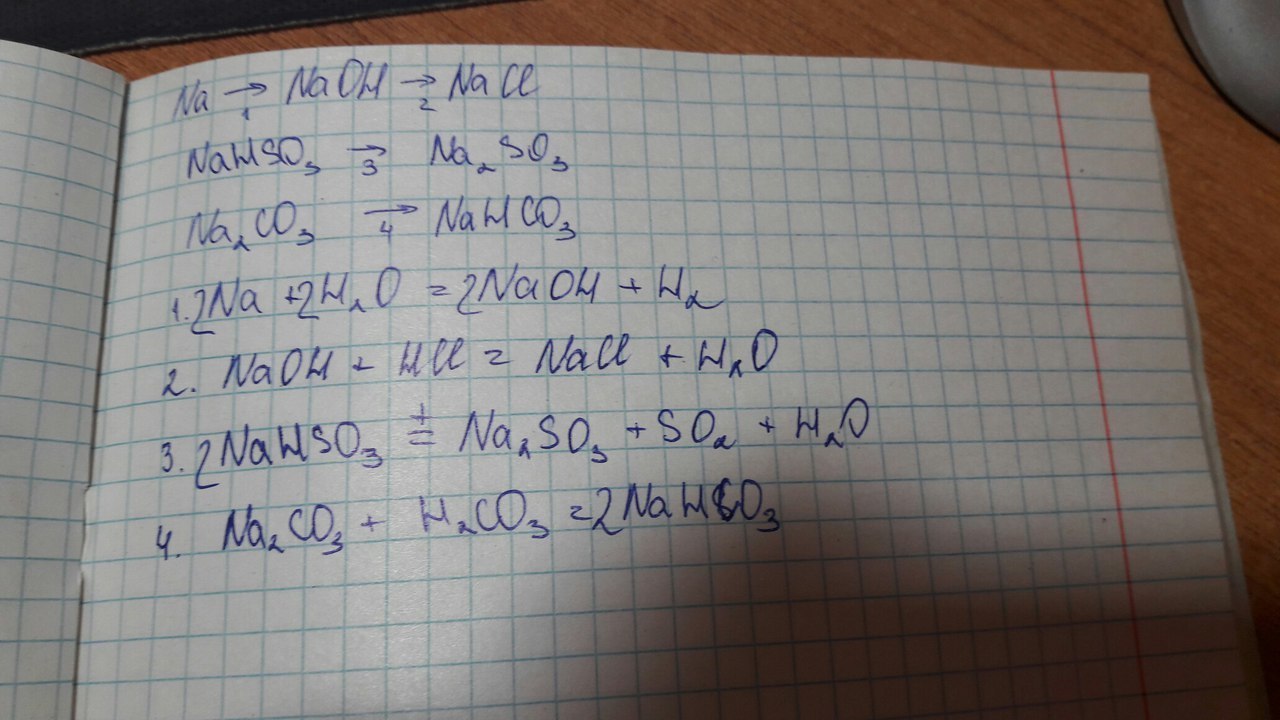 Na →₁ NaOH →₂ NaCl
NaHSO₃ →₃ Na₂SO₃
Na₂CO₃ →₄ NaHCO₃
1. 2Na + 2H₂O = 2NaOH + H₂
2. NaOH + HCl = NaCl + H₂O
3. 2NaHSO₃ =ᵗ Na₂SO₃ + SO₂ + H₂O
4. Na₂CO₃ + H₂CO₃ = 2NaHCO₃